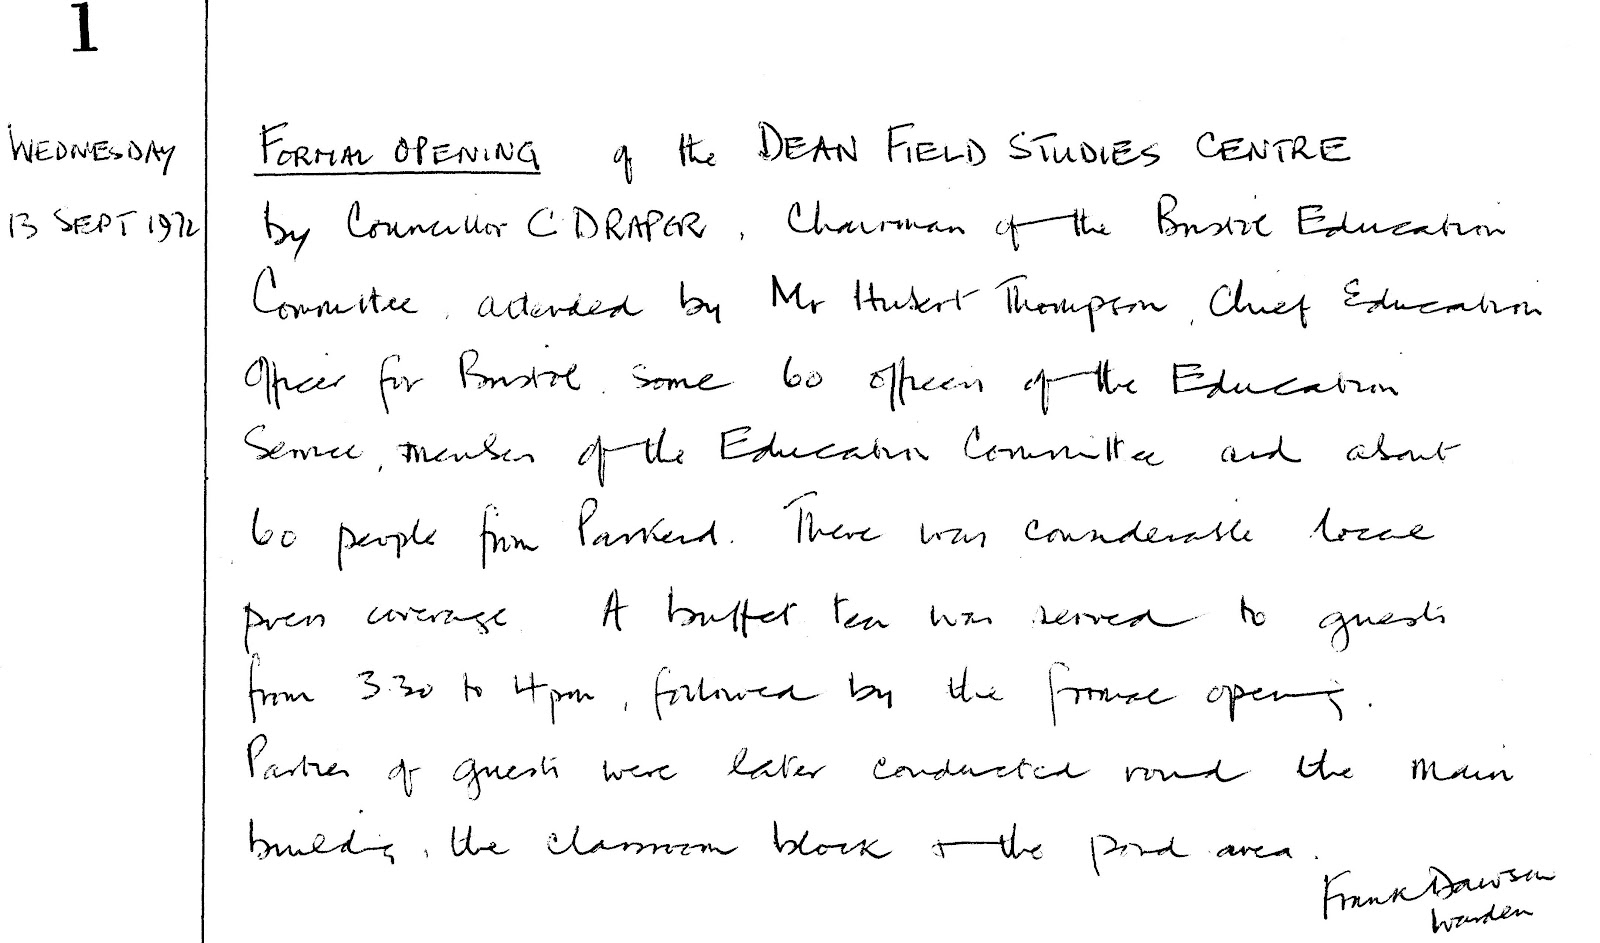 1
WEDNESDAY
13 SEPT 1972
FORMAL OPENING of the DEAN FIELD STUDIES CENTRE
by Councillor C DRAPER, Chairman of the Bristol Education
Committee, attended by Mr Hubert Thompson, Chief Education
Officer for Bristol. Some 60 officers of the Education
Service, members of the Education Committee and about
60 people from Parkend. There was considerable local
press coverage. A buffet tea was served to guests
from 3.30 to 4pm, followed by the formal opening.
Parties of guests were later conducted round the main
building, the classroom block & the pond area.
Frank Dawson
Warden